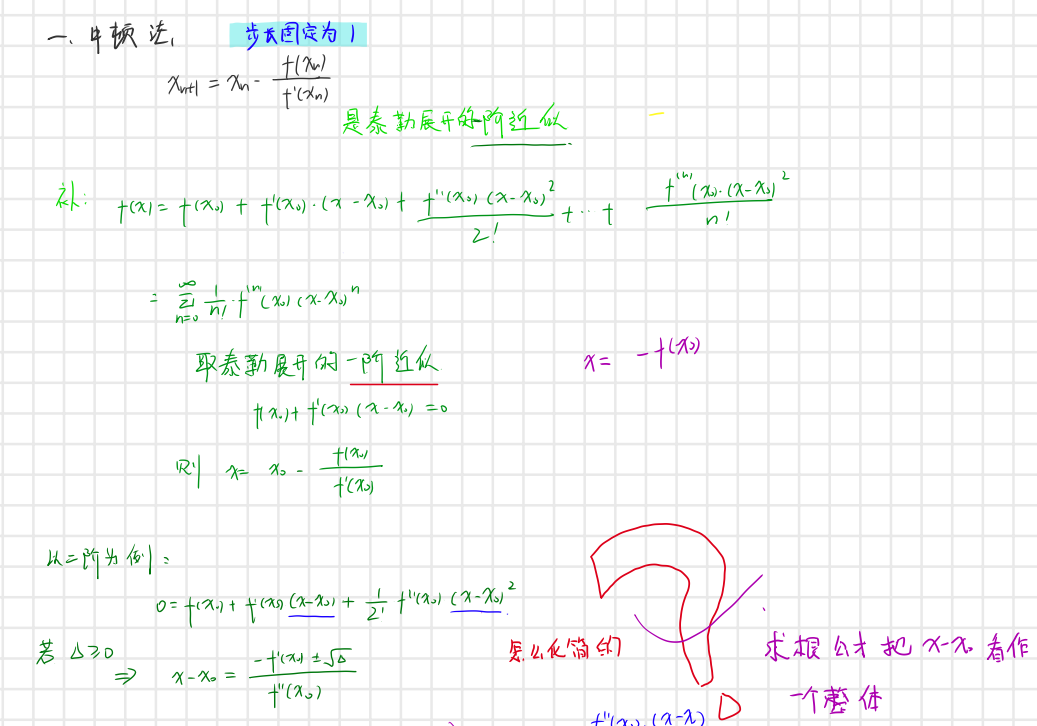 一. 牛顿法, 步长固定为1
xₙ₊₁ = xₙ - f(xₙ) / f'(xₙ)
是泰勒展开的一阶近似
补: f(x) = f(x₀) + f'(x₀)·(x-x₀) + f''(x₀)(x-x₀)² / 2! + ·· + f⁽ⁿ⁾(x₀)·(x-x₀)² / n!
= ∑ₙ₌₀^∞ 1/n! · f⁽ⁿ⁾(x₀)(x-x₀)ⁿ
取泰勒展开的一阶近似
x = -f(x₀)
f(x₀) + f'(x₀)(x-x₀) = 0
则 x = x₀ - f(x₀) / f'(x₀)
以二阶为例:
0 = f(x₀) + f'(x₀)(x-x₀) + 1/2! f''(x₀)(x-x₀)².
若 Δ≥0
⇒ x-x₀ = -f'(x₀) ± √Δ / f''(x₀)
怎么化简的
?
求根公才把 x-x₀ 看作
一个整体